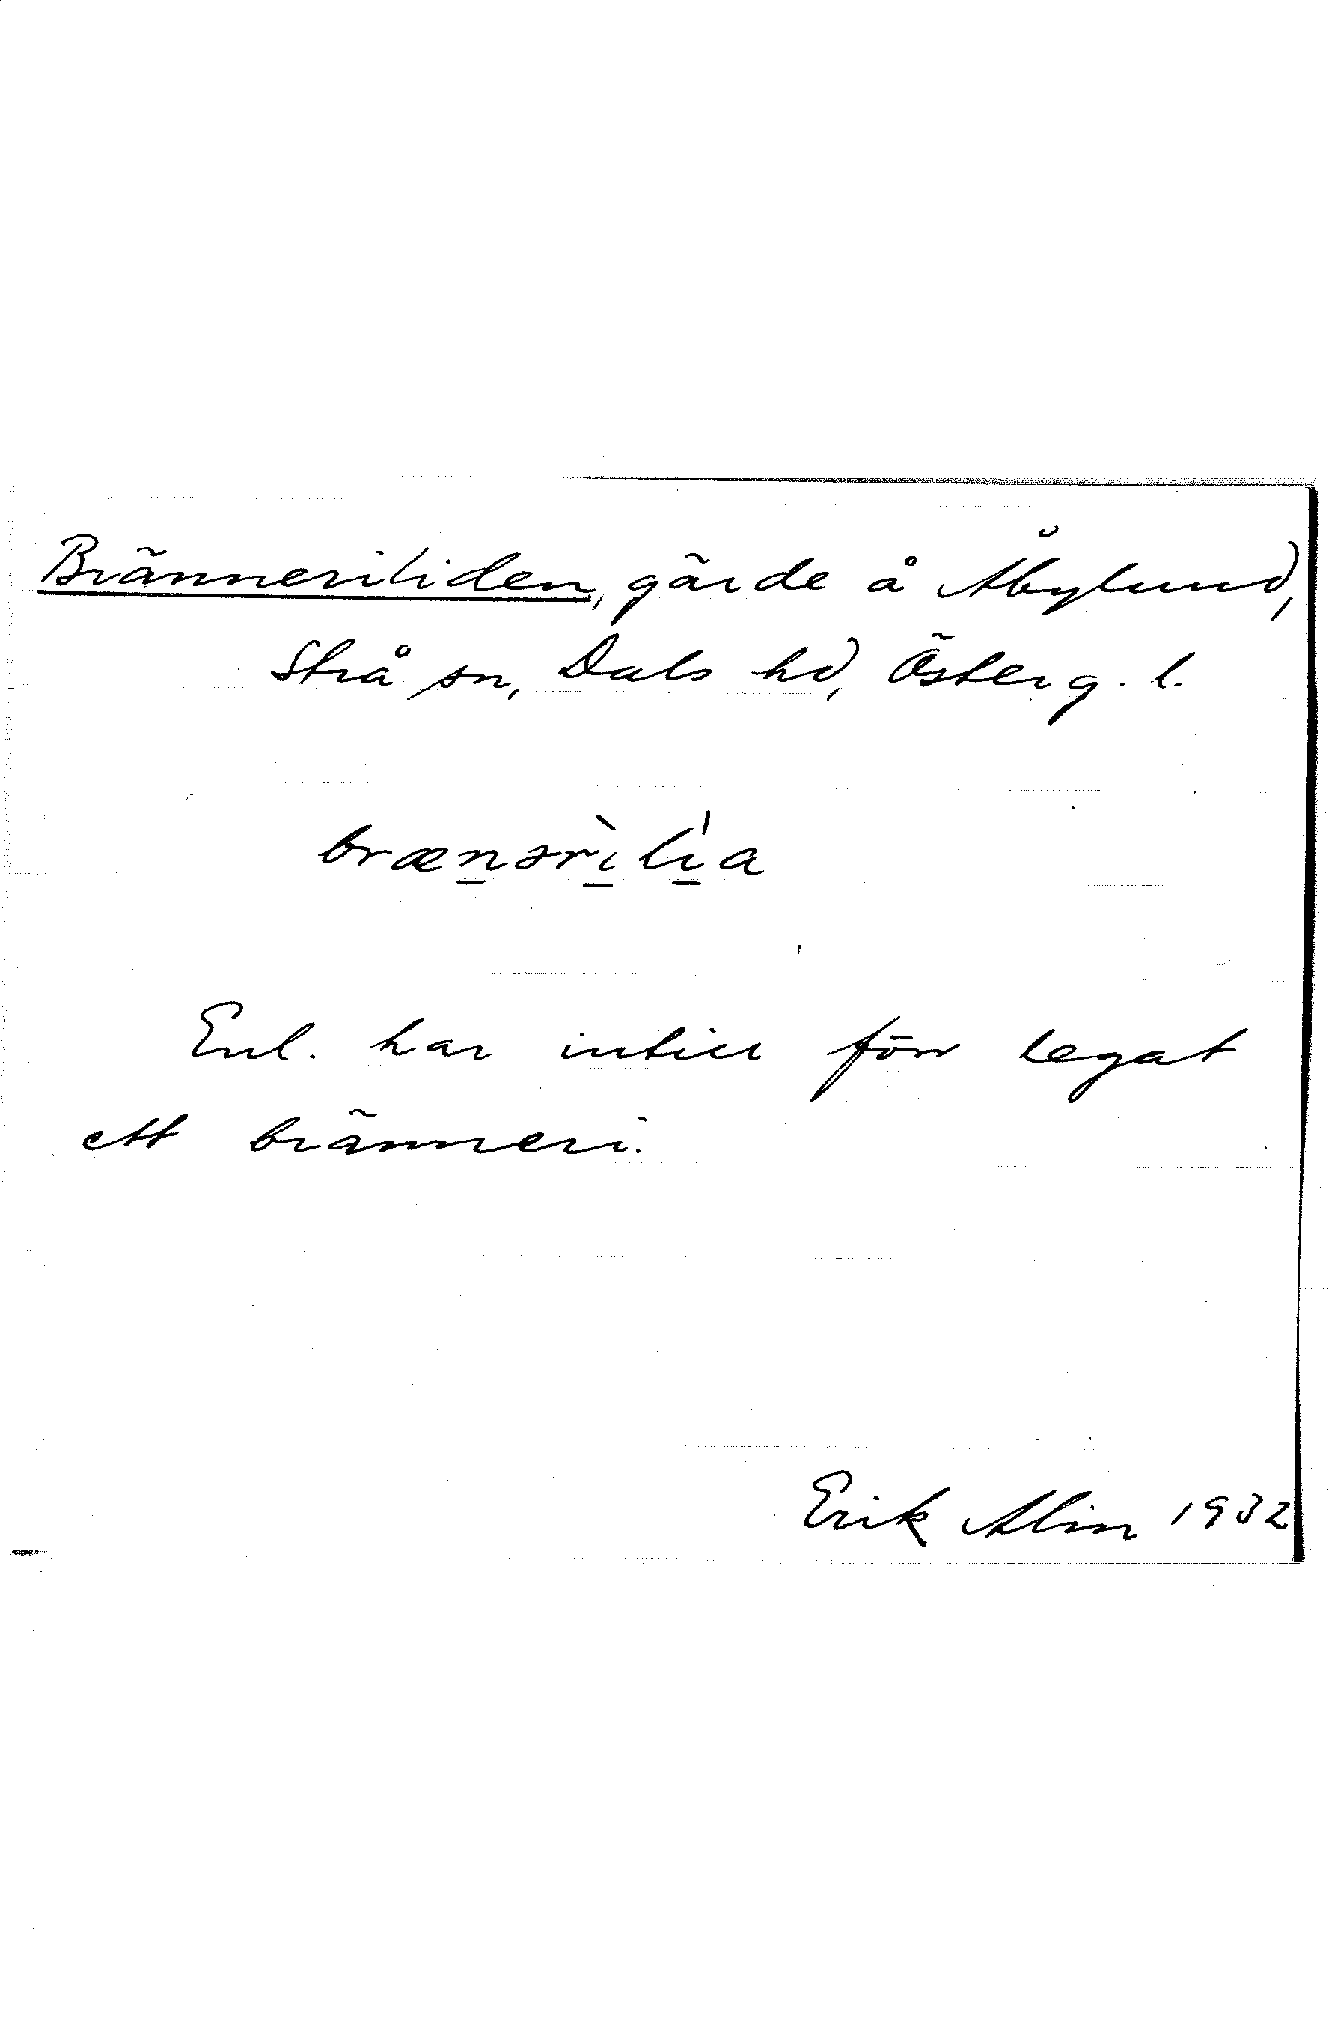 Bränneriliden, gärde å Åbylund,
Strå sn, Dals hd, Österg. l.
brænərìlìa
Enl. har intill förr legat
ett bränneri.
Erik Alin 1932